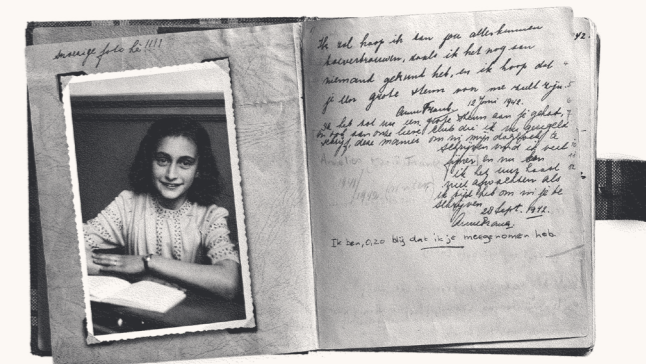 snoezige foto hè!!!!
Ik zal hoop ik aan jou alles kunnen
toevertrouwen, zoals ik het nog aan
niemand gekund heb, en ik hoop dat
je een grote steun voor me zult zijn.
Anne Frank. 12 Juni 1942.
Ik heb tot nu een grote steun aan je gehad,
en ook aan onze lieve club die ik nu geregeld
schrijf, deze manier om in mijn dagboek te
schrijven vind ik veel
fijner en nu kan
ik het uur haast
niet afwachten als
ik tijd heb om in je te
schrijven
28 Sept. 1942.
Anne Frank
Ik ben, O, zo blij dat ik je meegenomen heb
42.